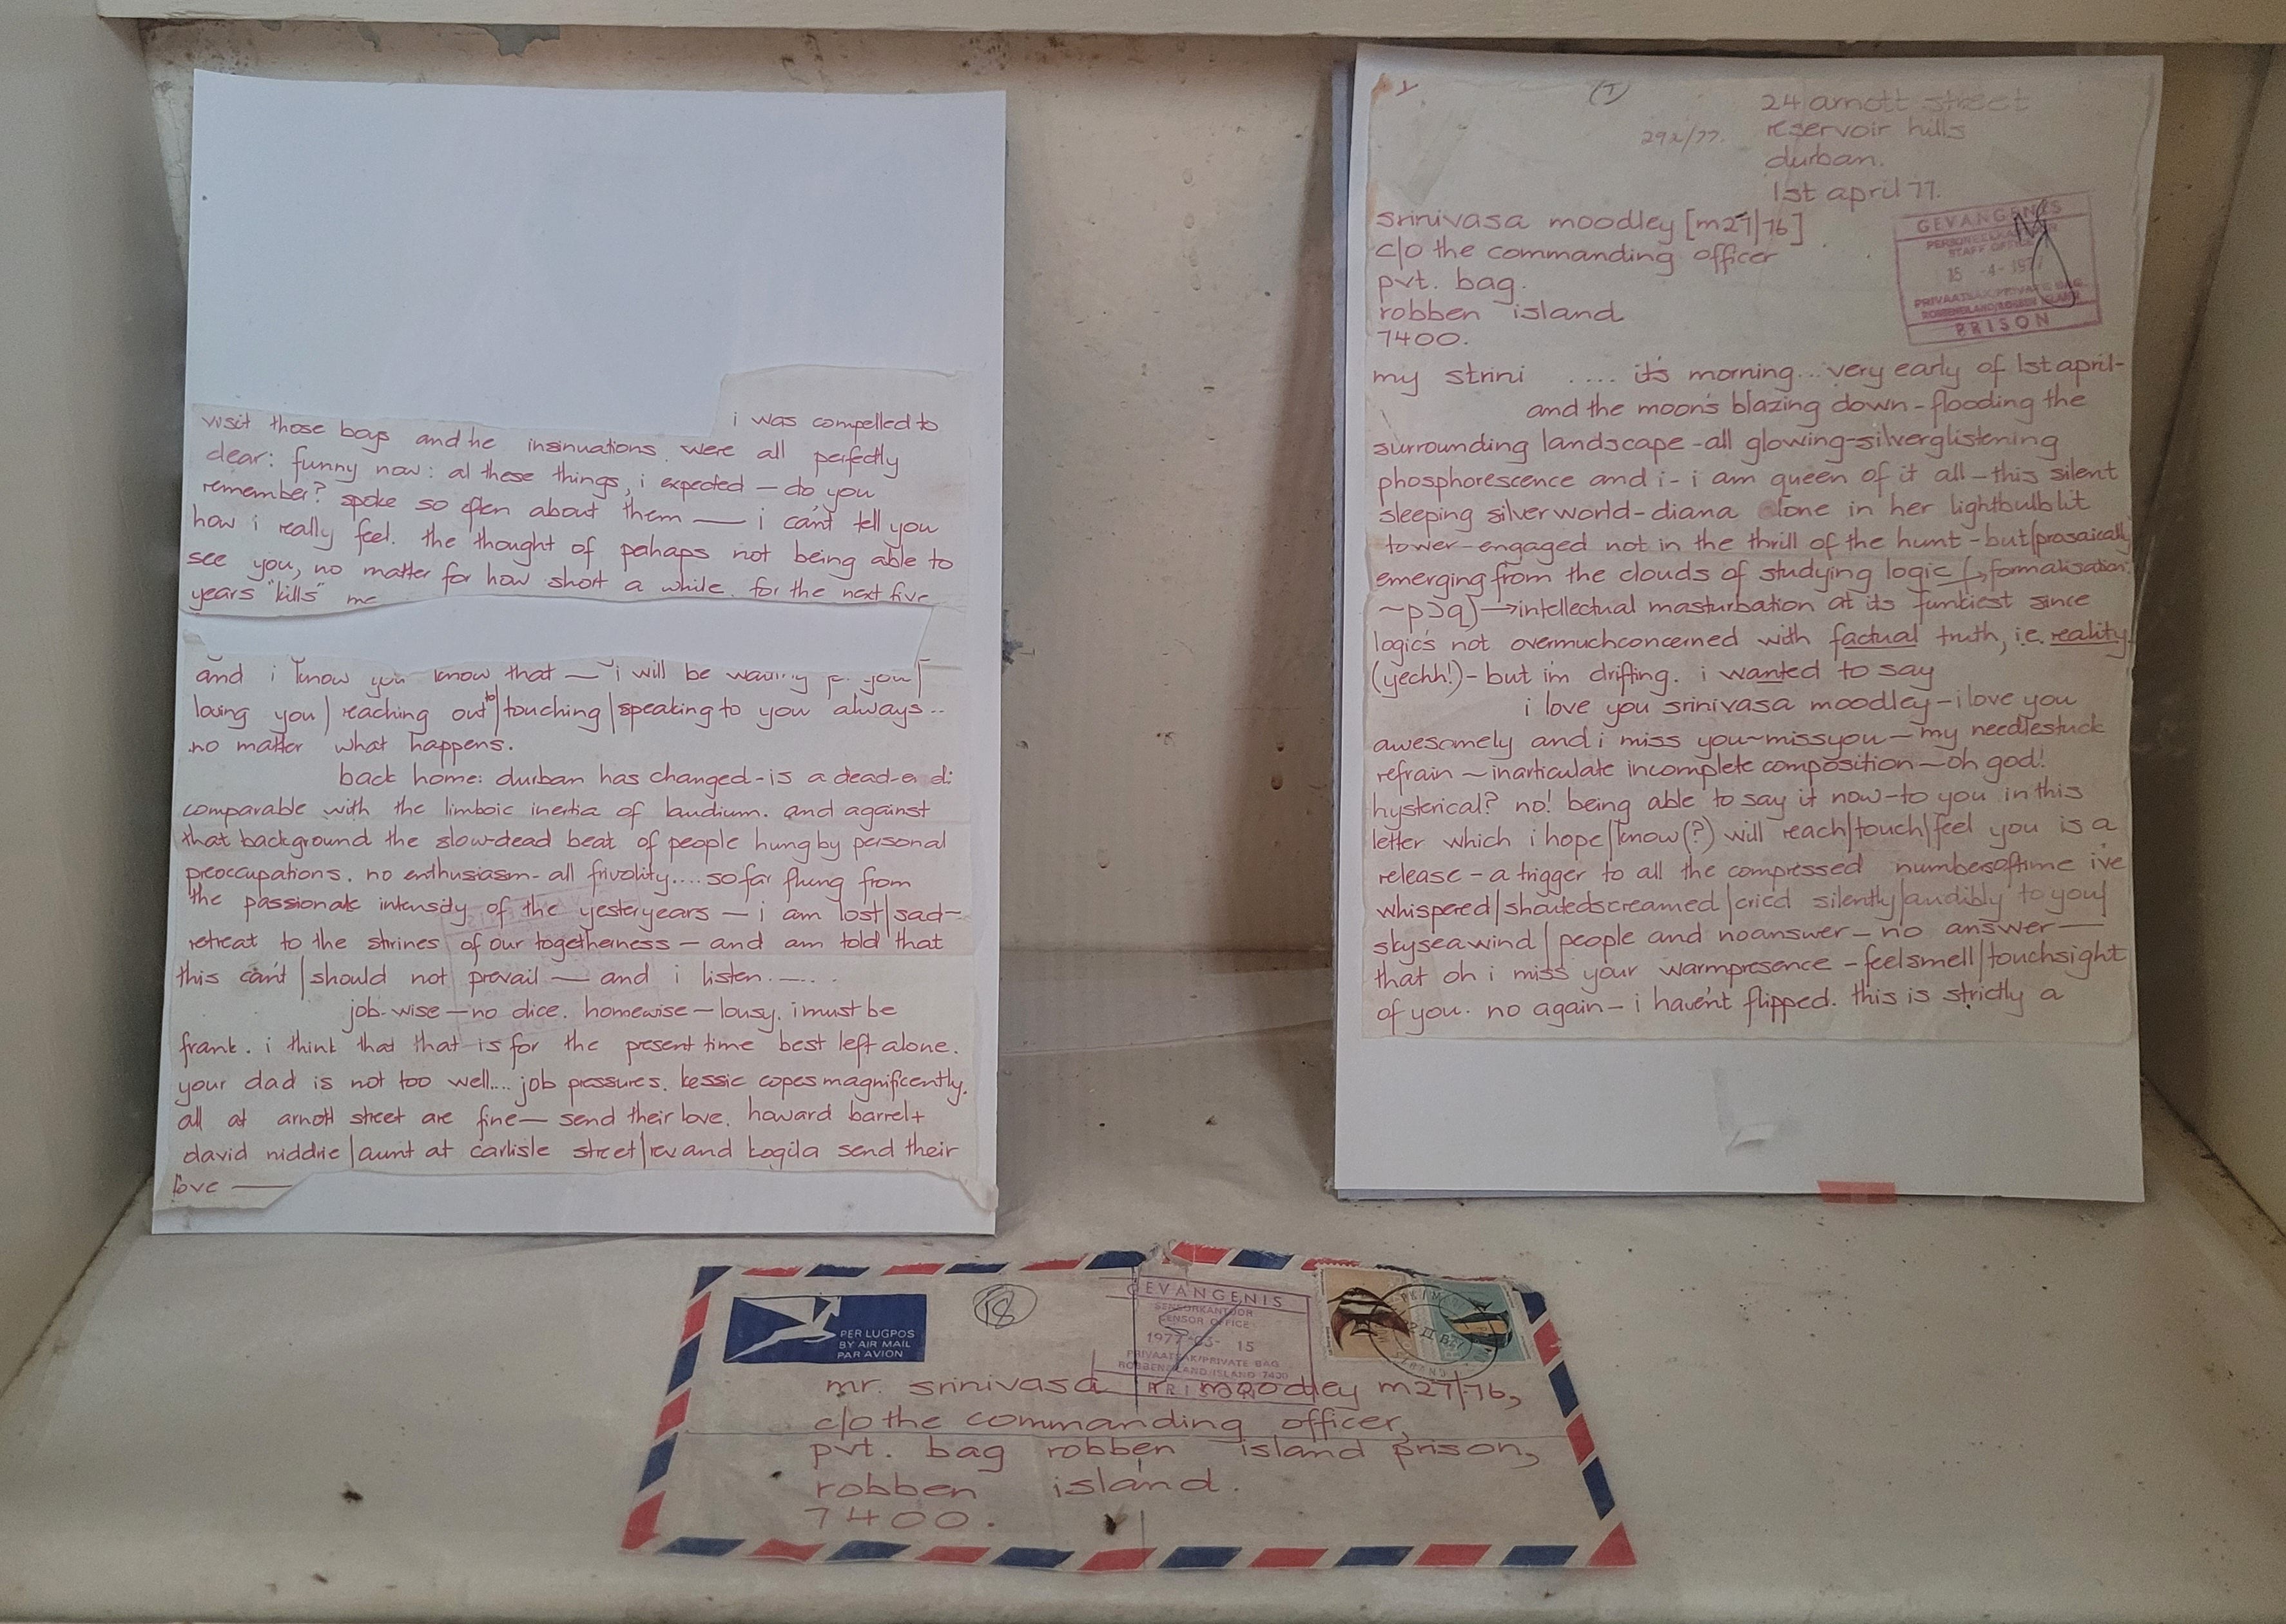 visit those boys and he insinuations were all perfectly
i was compelled to
clear: funny now: al these things, i expected — do you
remember? spoke so often about them — i can't tell you
how i really feel. the thought of pehaps not being able to
see you, no matter for how short a while. for the next five
years "kills" me
and i know you know that — i will be you|
loving you| reaching out to|touching|speaking to you always..
no matter what happens.
back home: durban has changed - is a dead-e d:
comparable with the limboic inertia of laudium. and against
that background the slow-dead beat of people hung by personal
preoccupations. no enthusiasm - all frivolity.... so far flung from
the passionate intensity of the yesteryears — i am lost|sad-
retreat to the shrines of our togetherness — and am told that
this can't|should not prevail — and i listen......
job-wise — no dice. homewise — lousy. i must be
frank. i think that that is for the present time best left alone.
your dad is not too well.... job pressures. kessie copes magnificently.
all at arnott street are fine — send their love. howard barrel+
david niddrie|aunt at carlisle street|rev and kogila send their
love —
(1)
24 arnott street
reservoir hills
durban.
1st april 77.
srinivasa moodley [m27/76]
c/o the commanding officer
pvt. bag.
robben island
7400.
GEVANGENIS
STAFF OFFICE
15 -4- 1977
PRIVAATSAK/PRIVATE BAG
ROBBENEILAND/ROBBEN ISLAND
PRISON
my strini .... it's morning... very early of 1st april-
and the moon's blazing down - flooding the
surrounding landscape - all glowing - silverglistening
phosphorescence and i - i am queen of it all - this silent
sleeping silverworld - diana alone in her lightbulblit
tower - engaged not in the thrill of the hunt - but|prosaically
emerging from the clouds of studying logic [, formalisation:
~p⊃q] → intellectual masturbation at its funkiest since
logic's not overmuchconcerned with factual truth, i.e. reality.
(yechh!) - but i'm drifting. i wanted to say
i love you srinivasa moodley - i love you
awesomely and i miss you - missyou - my needlestuck
refrain - inarticulate incomplete composition - oh god!
hysterical? no! being able to say it now - to you in this
letter which i hope|know(?) will reach|touch|feel you is a
release - a trigger to all the compressed numbersoftime i've
whispered|shoutedscreamed|cried silently|audibly to you|
skyseawind|people and noanswer - no answer —
that oh i miss your warmpresence - feelsmell|touchsight
of you. no again - i haven't flipped. this is strictly a
PER LUGPOS
BY AIR MAIL
PAR AVION
18
GEVANGENIS
SENSORKANTOOR
CENSOR OFFICE
1977-03-15
PRIVAATSAK/PRIVATE BAG
ROBBENEILAND/ISLAND 7400
PRISON
mr. srinivasa r moodley m27/76,
c/o the commanding officer,
pvt. bag robben island prison,
robben island.
7400.